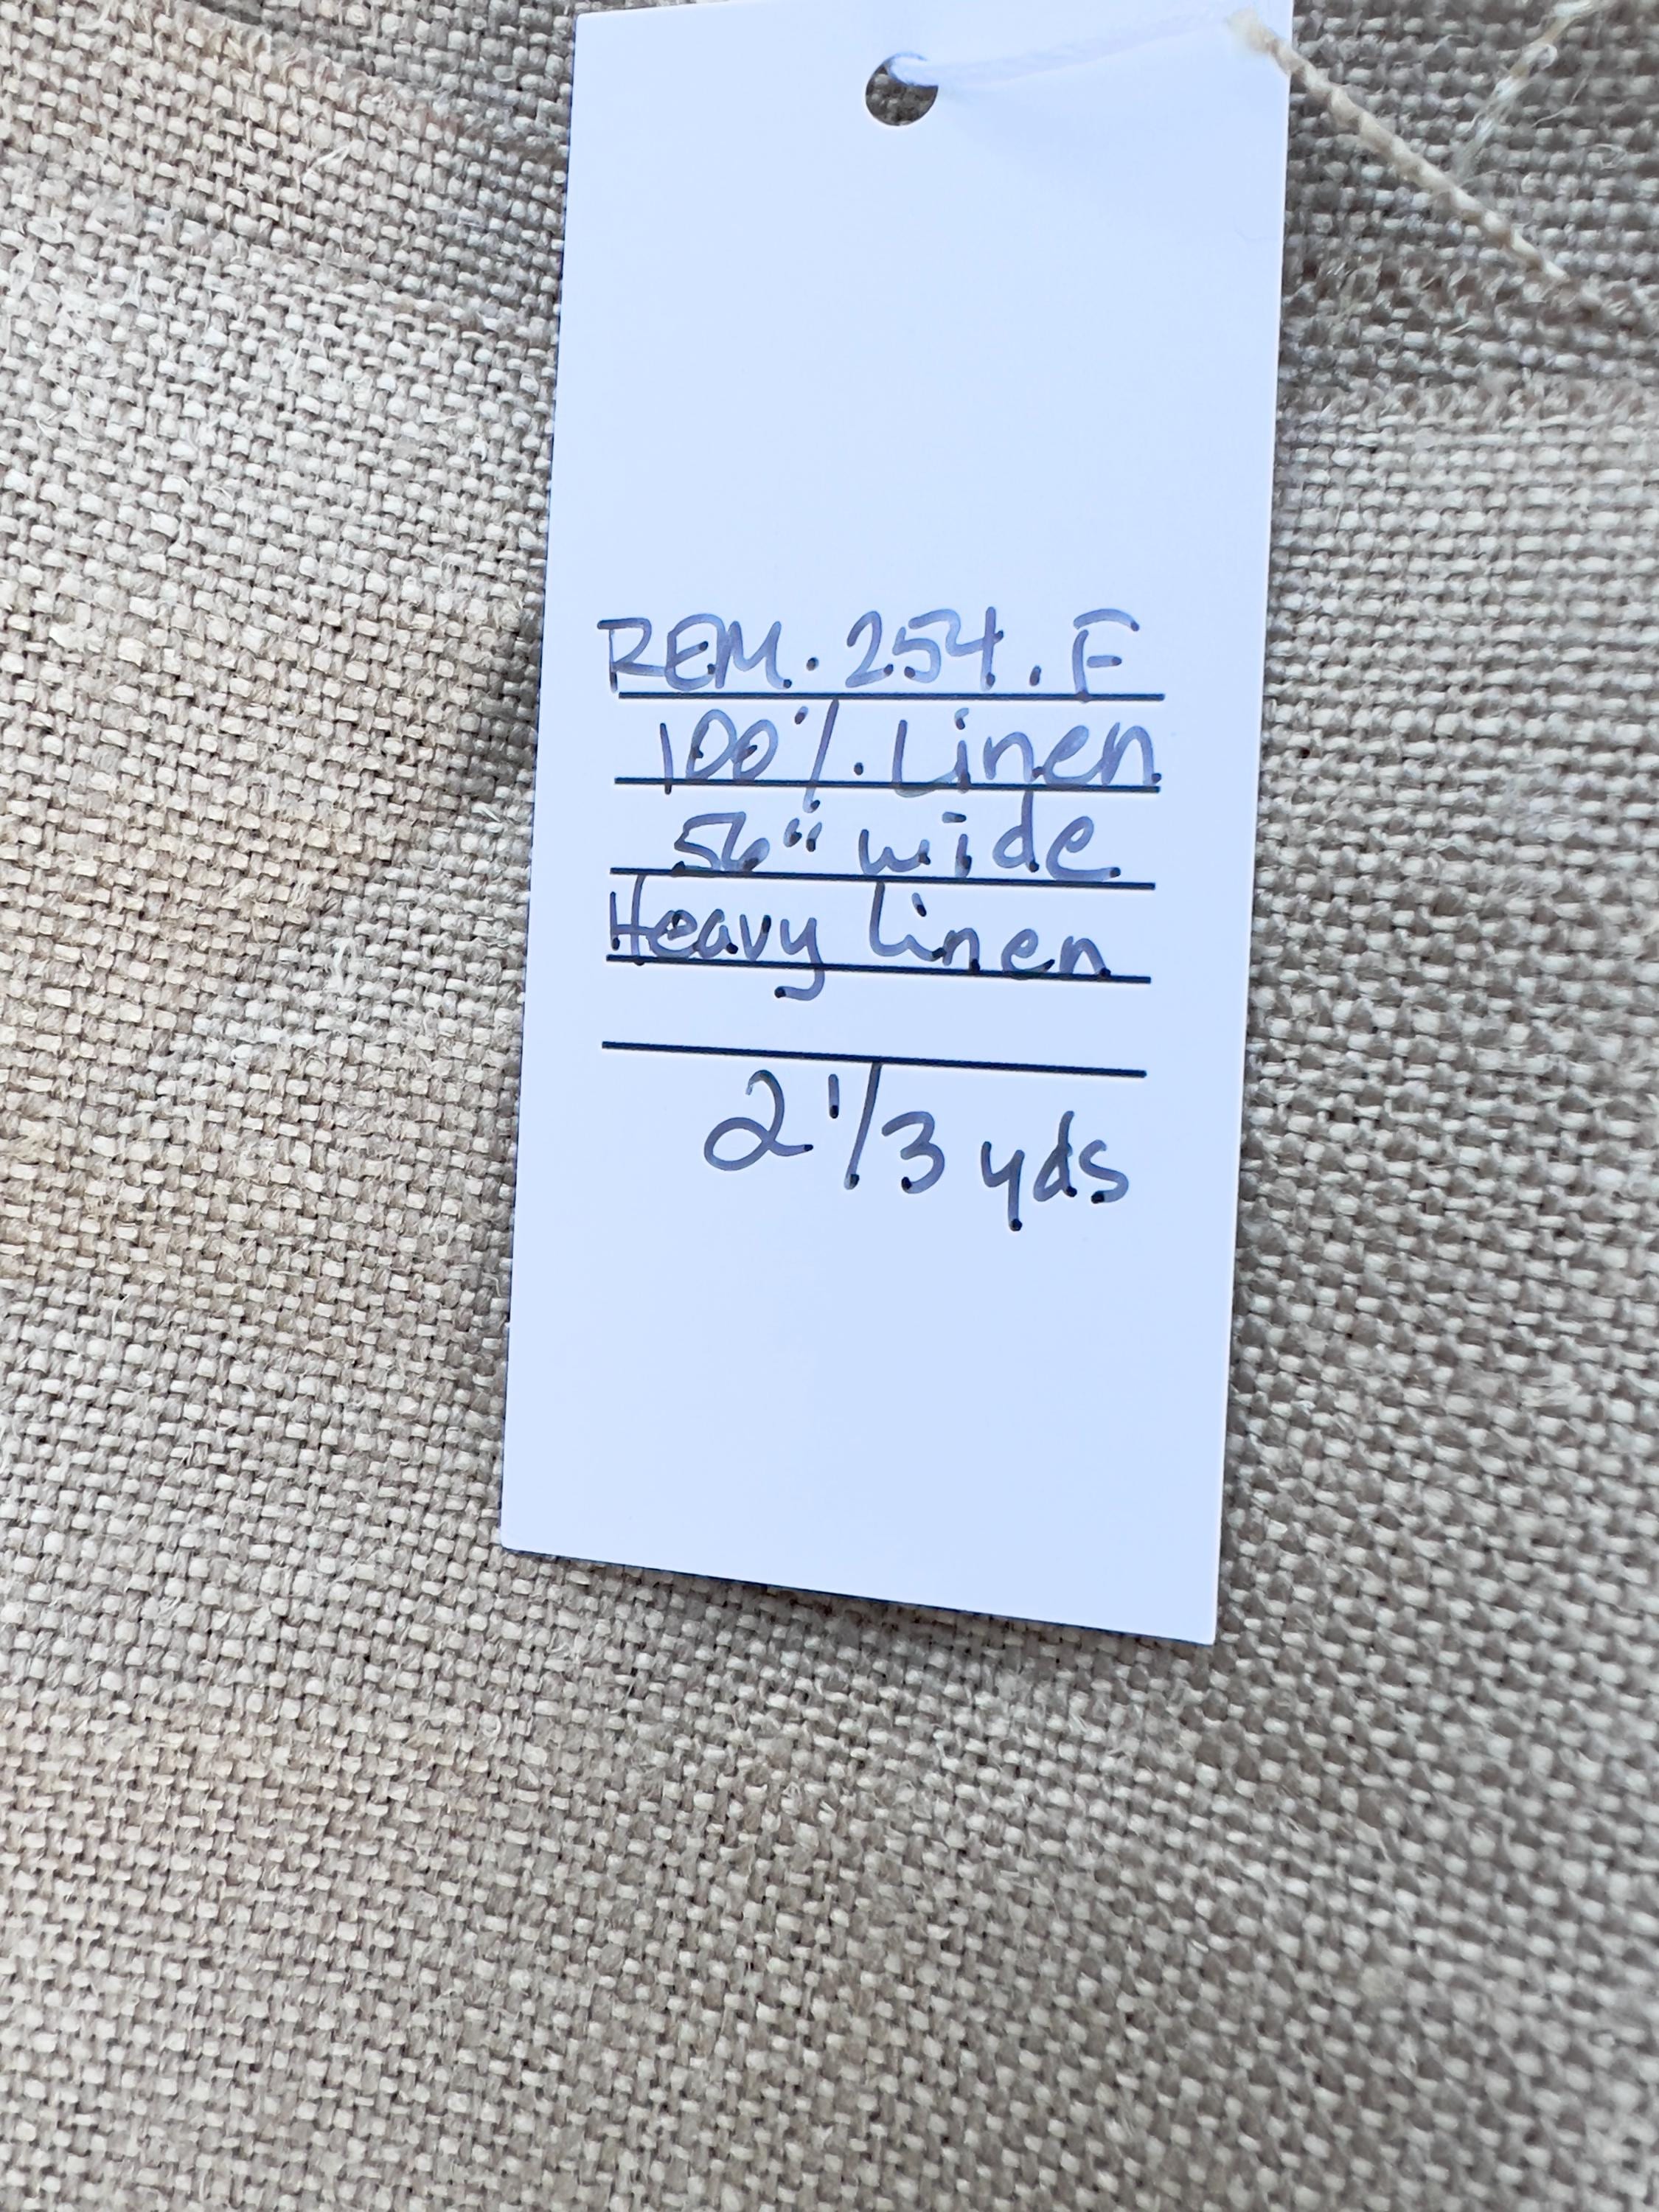 REM. 254. F
100% Linen
56" wide
Heavy linen
2 1/3 yds